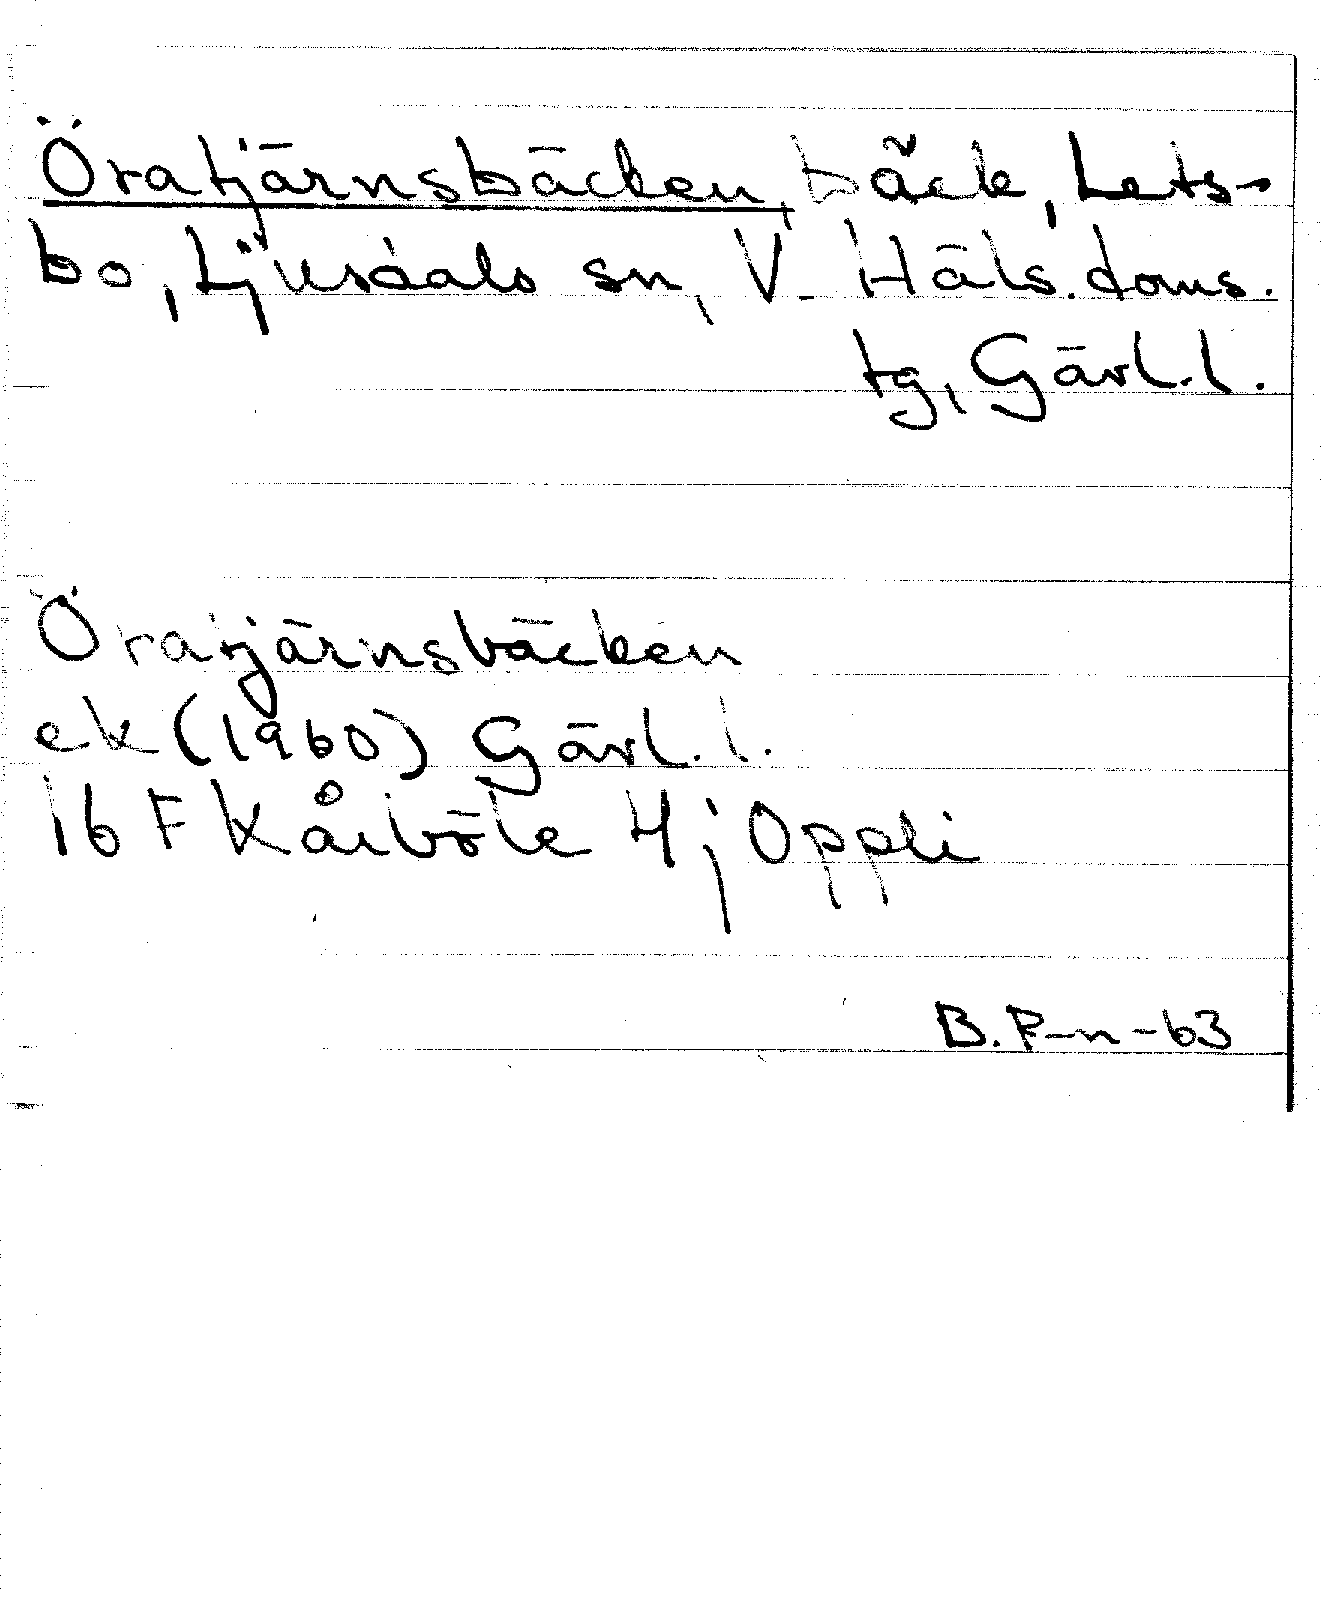 Öratjärnsbäcken, bäck, Lets-
bo, Ljusdals sn, V. Häls. doms.
tg, Gävl. l.
Öratjärnsbäcken
ek (1960) Gävl. l.
16 F Kårböle 4 j Oppli
B. P-n -63